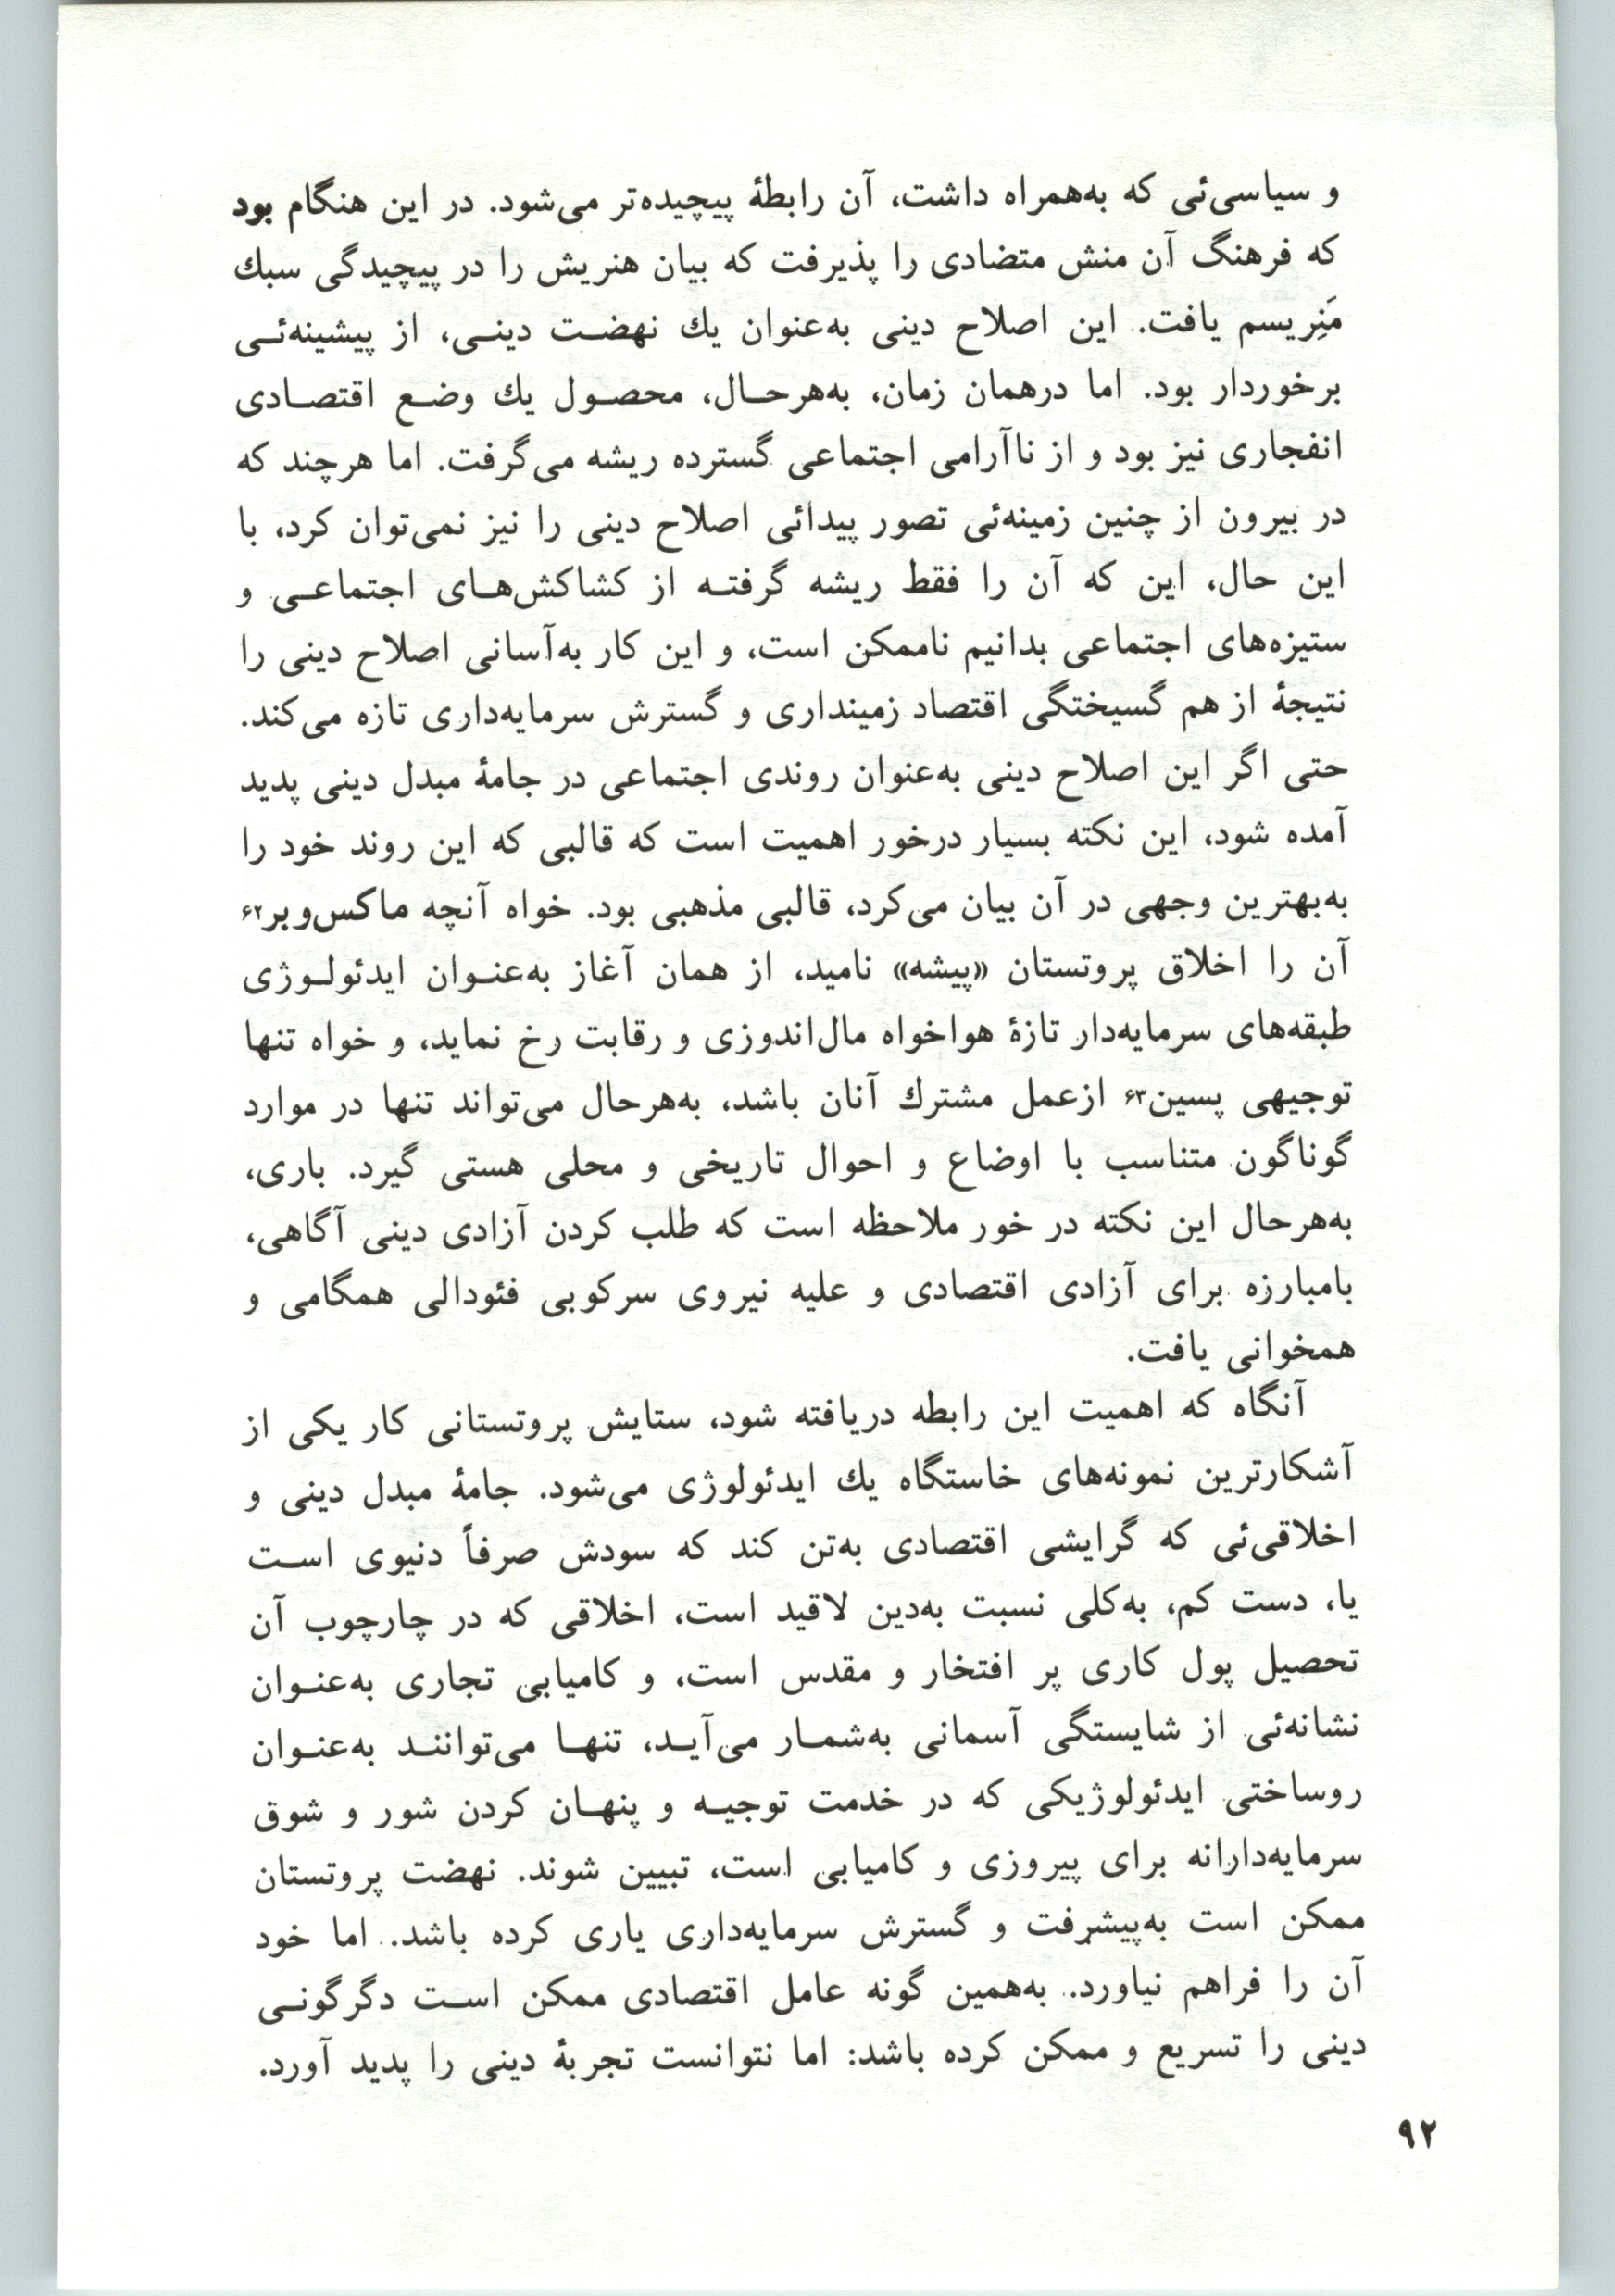 و سیاسی‌ئی که به‌همراه داشت، آن رابطهٔ پیچیده‌تر می‌شود. در این هنگام بود
که فرهنگ آن منش متضادی را پذیرفت که بیان هنریش را در پیچیدگی سبك
مَنِریسم یافت. این اصلاح دینی به‌عنوان یك نهضت دینی، از پیشینه‌ئی
برخوردار بود. اما درهمان زمان، به‌هرحال، محصول یك وضع اقتصادی
انفجاری نیز بود و از ناآرامی اجتماعی گسترده ریشه می‌گرفت. اما هرچند که
در بیرون از چنین زمینه‌ئی تصور پیدائی اصلاح دینی را نیز نمی‌توان کرد، با
این حال، این که آن را فقط ریشه گرفته از کشاکش‌های اجتماعی و
ستیزه‌های اجتماعی بدانیم ناممکن است، و این کار به‌آسانی اصلاح دینی را
نتیجهٔ از هم گسیختگی اقتصاد زمینداری و گسترش سرمایه‌داری تازه می‌کند.
حتی اگر این اصلاح دینی به‌عنوان روندی اجتماعی در جامهٔ مبدل دینی پدید
آمده شود، این نکته بسیار درخور اهمیت است که قالبی که این روند خود را
به‌بهترین وجهی در آن بیان می‌کرد، قالبی مذهبی بود. خواه آنچه ماکس‌وبر۶۲
آن را اخلاق پروتستان «پیشه» نامید، از همان آغاز به‌عنوان ایدئولوژی
طبقه‌های سرمایه‌دار تازهٔ هواخواه مال‌اندوزی و رقابت رخ نماید، و خواه تنها
توجیهی پسین۶۳ ازعمل مشترك آنان باشد، به‌هرحال می‌تواند تنها در موارد
گوناگون متناسب با اوضاع و احوال تاریخی و محلی هستی گیرد. باری،
به‌هرحال این نکته در خور ملاحظه است که طلب کردن آزادی دینی آگاهی،
بامبارزه برای آزادی اقتصادی و علیه نیروی سرکوبی فئودالی همگامی و
همخوانی یافت.
آنگاه که اهمیت این رابطه دریافته شود، ستایش پروتستانی کار یکی از
آشکارترین نمونه‌های خاستگاه یك ایدئولوژی می‌شود. جامهٔ مبدل دینی و
اخلاقی‌ئی که گرایشی اقتصادی به‌تن کند که سودش صرفاً دنیوی است
یا، دست کم، به‌کلی نسبت به‌دین لاقید است، اخلاقی که در چارچوب آن
تحصیل پول کاری پر افتخار و مقدس است، و کامیابی تجاری به‌عنوان
نشانه‌ئی از شایستگی آسمانی به‌شمار می‌آید، تنها می‌توانند به‌عنوان
روساختی ایدئولوژیکی که در خدمت توجیه و پنهان کردن شور و شوق
سرمایه‌دارانه برای پیروزی و کامیابی است، تبیین شوند. نهضت پروتستان
ممکن است به‌پیشرفت و گسترش سرمایه‌داری یاری کرده باشد. اما خود
آن را فراهم نیاورد. به‌همین گونه عامل اقتصادی ممکن است دگرگونی
دینی را تسریع و ممکن کرده باشد: اما نتوانست تجربهٔ دینی را پدید آورد.
۹۲